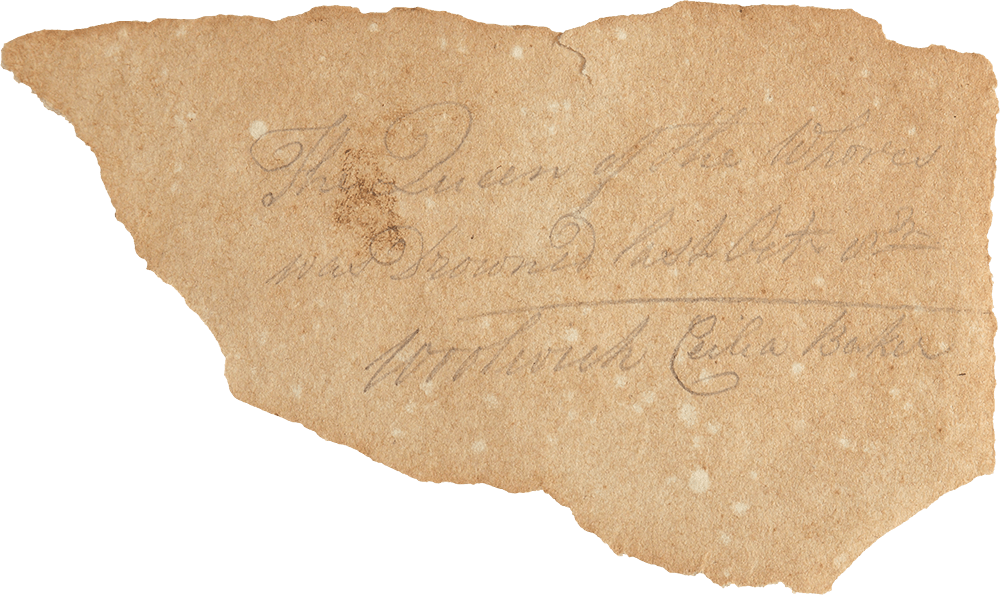 The Queen of the Whores
was Drowned last Oct
Woolwich Cecilia Baker